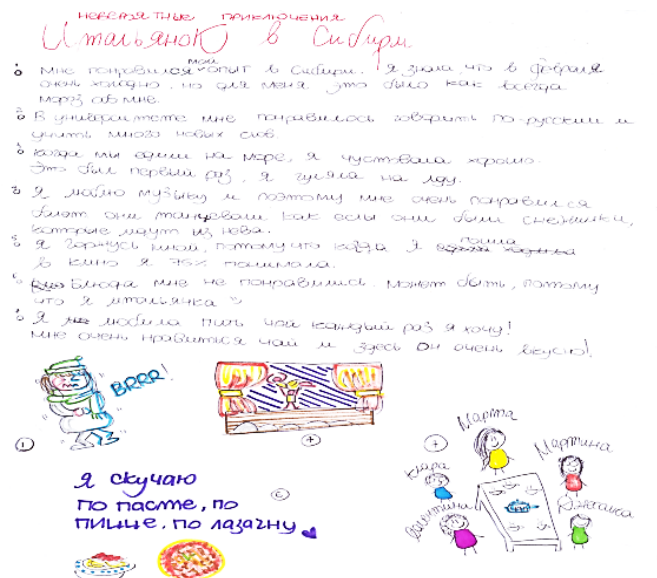 невероятные приключения
Итальянок в Сибири
мой
1. Мне понравился опыт в Сибири. Я знала, что в феврале
очень холодно, но для меня это было как всегда
мороз
2. В университете мне понравилось говорить по-русски и
учить много новых слов.
3. Когда мы ездили на море, я чуствовала хорошо.
Это был первый раз, я гуляла на льду.
4. Я люблю музыку и поэтому мне очень понравился
балет они танцевали как если они были снежинки,
которые идут из неба.
5. Я горжусь мной, потому что когда я пошла
в кино я 75% понимала.
6. Блюда мне не понравились. Может быть, потому
что я итальянка
7. Я любила пить чай каждый раз я хочу!
Мне очень нравится чай и здесь он очень вкусно!
BRRR!
1
4
7
Марта
Мартина
Кьяра
Валентина
я скучаю
по пасте, по
пицце, по лазагну
6